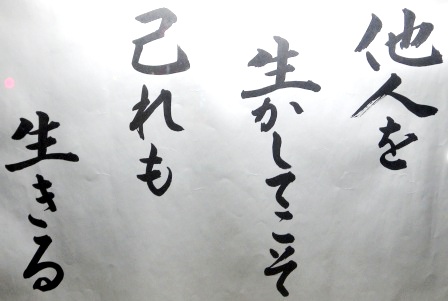 他人を
生かしてこそ
己れも
生きる